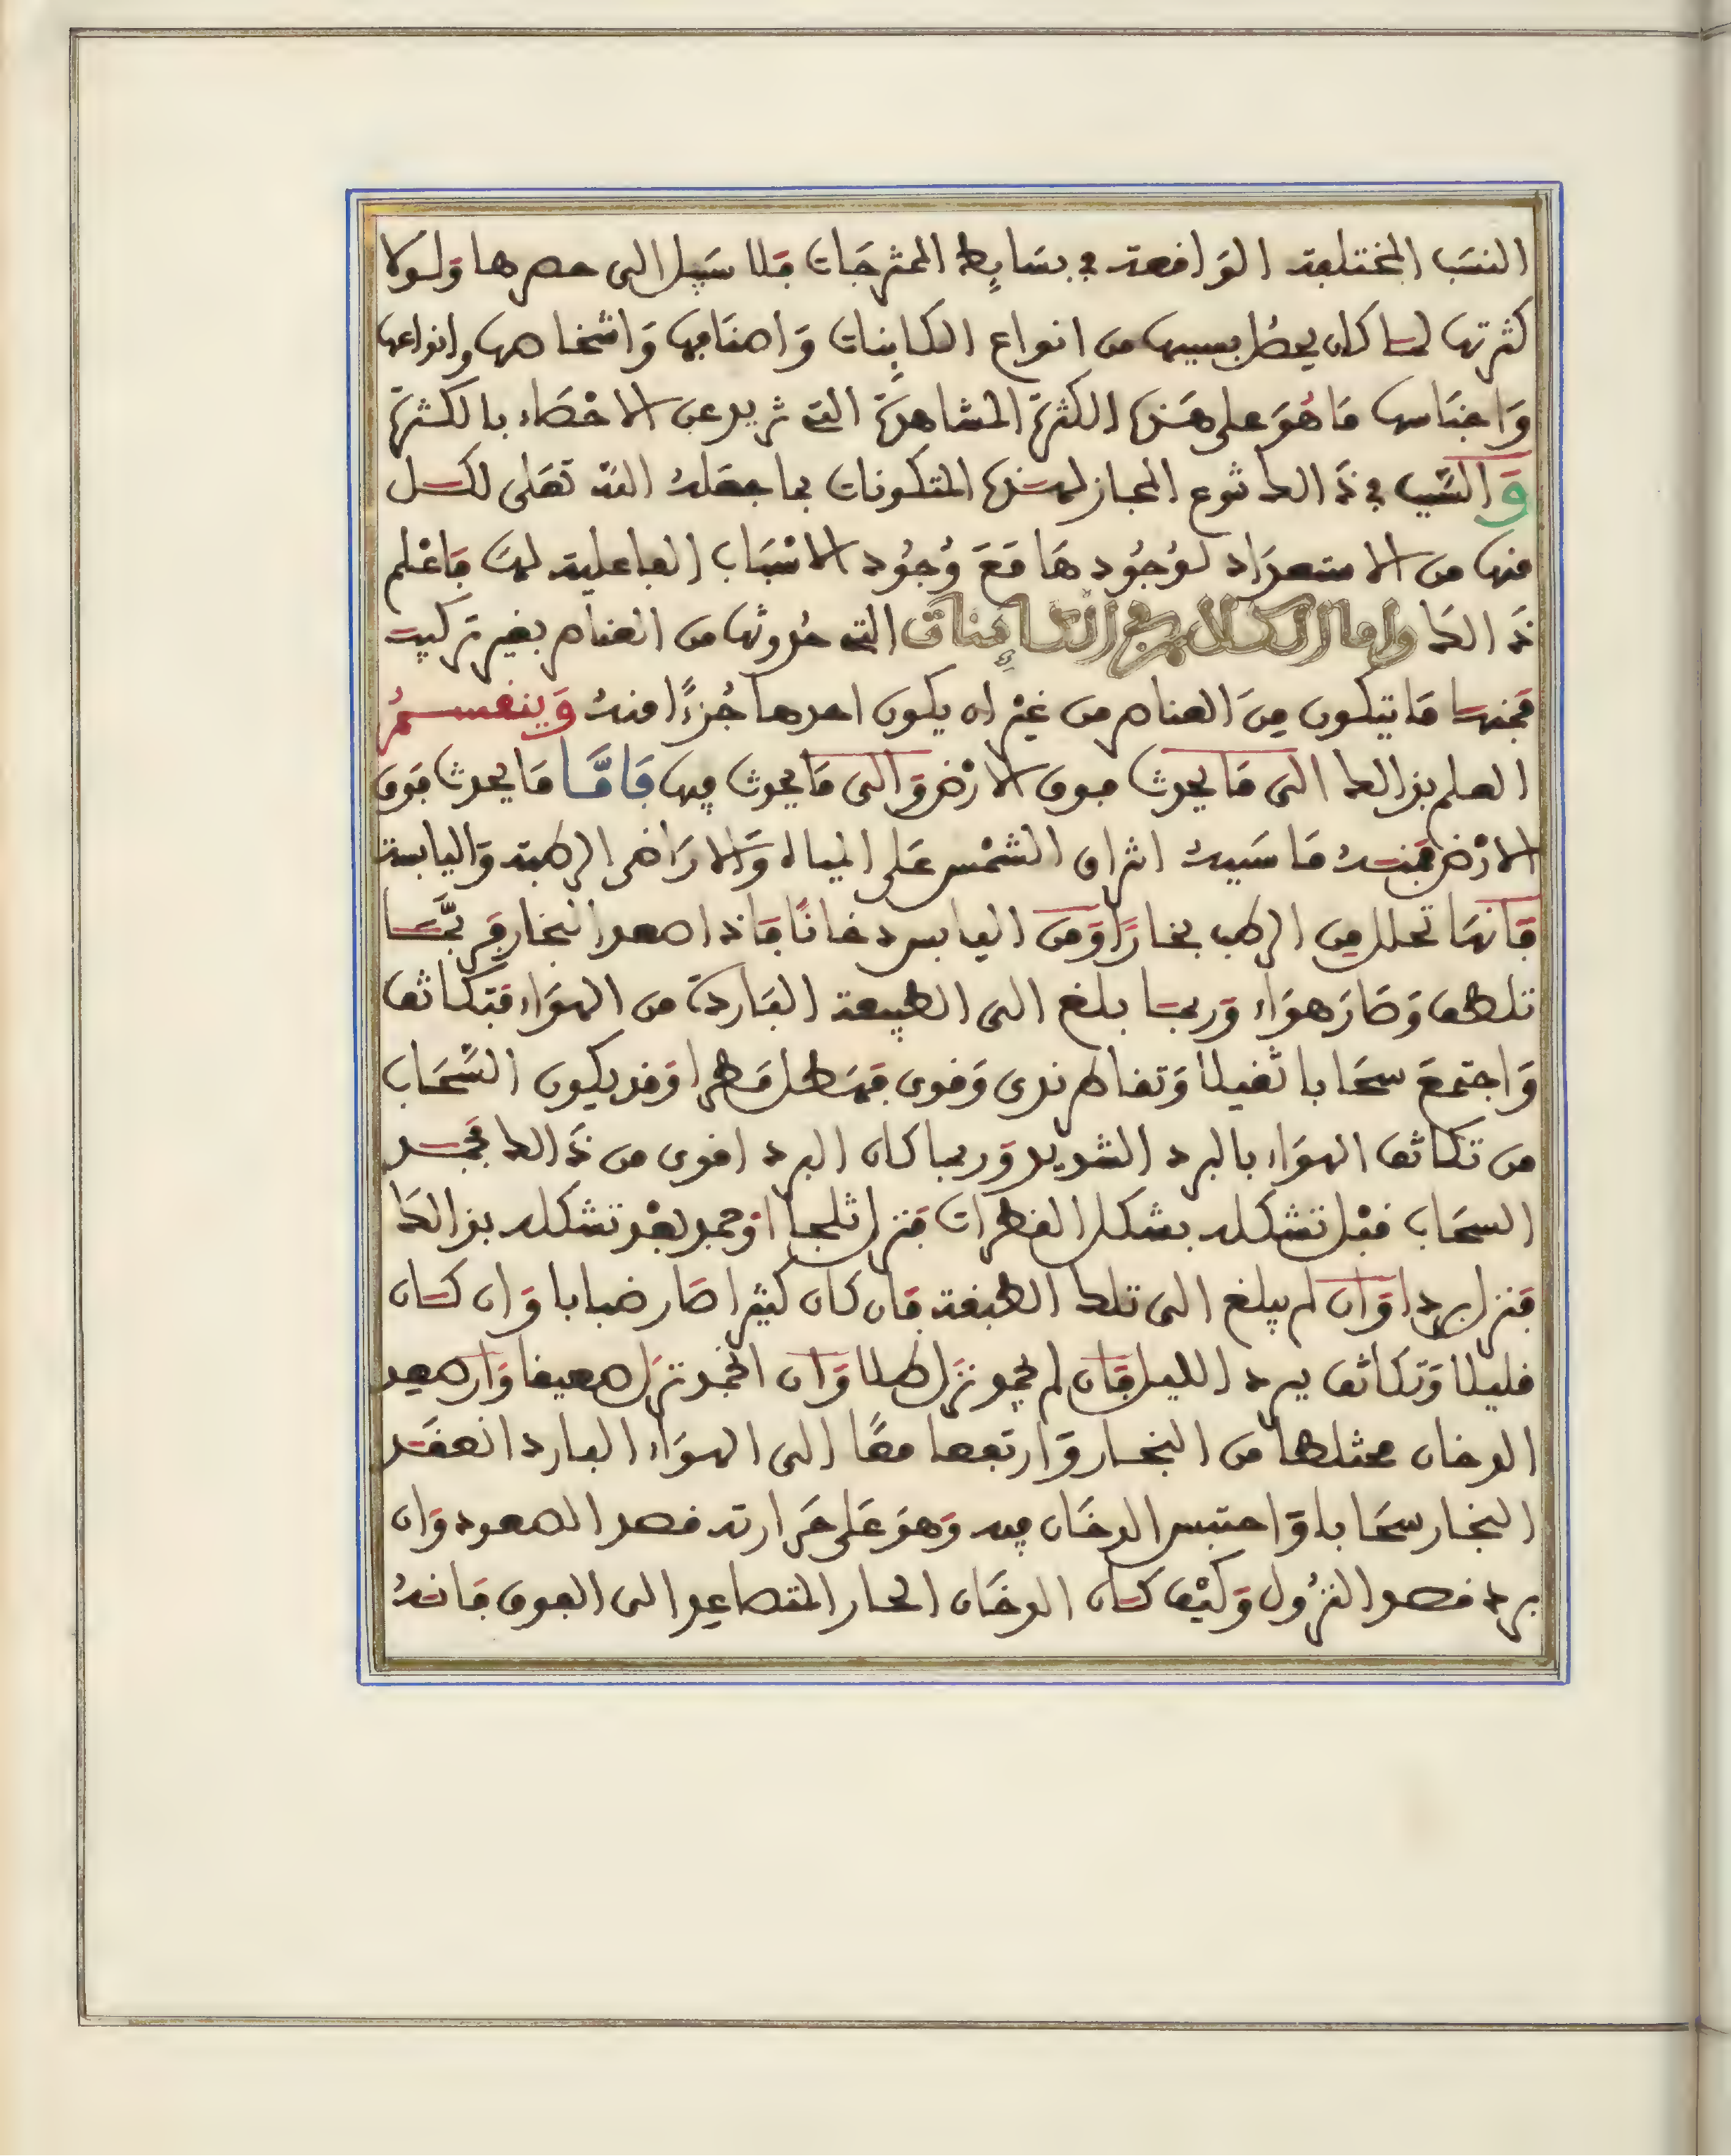 النسَب المختلفة الوَاقعة في بسَايِط الممتزجَات فلا سَبيل الى حصرها وَلولا
كثرتها لما كان يحصُل بسببها من انواع الكاينات وَاصنافها وَاشخاصها وانواعها
وَاجنَاسها مَا هُوَ على هَذه الكثرة المشاهدة التي تزيد عن الاحْصَاء بالكثرة
وَالسَّبب في ذَالك تنوع المجاز لهذه المتكونات بما جعَلهُ الله تعَلى لكل
منها من الاستعدَاد لوُجُودهَا مَعَ وُجُود الاسْبَاب الفاعلية لهَا فَاعْلم
ذَالك واما الكلام في الكاينات التي حُدوثها من العناصر بغير تركيب
فمنها مَا يتكون مِنَ العناصر من غيْر ان يكون احدها جُزءًا منهُ وَينقسمُ
العلم بذالك الى مَا يحدث فوق الارْض وَالى مَا يحدث فيها فَامَّا مَا يحدث فوق
الارْض فمنهُ مَا سَببهُ اشراق الشمْس عَلى المياه وَالارَاضي الرطبة وَاليابسة
فَانهَا تحلل مِن الرطب بخارًا وَمن اليابس دخانًا فَاذا صعد البخار فرُبَّمَا
تلطف وَصَارَ هوَاء وَربما بلغ الى الطبيعة البَاردة من الهوَاء فتكاثف
وَاجتمعَ سحَابا ثقيلا وَتقاطر ندى وَقوى فهَطل مَطرا وَقد يكون السَّحَاب
من تكاثف الهوَاء بالبرد الشديد وَربما كان البرد اقوى من ذَالك فجمد
السحَاب قبْل تشكله بشكل القطرات فنزل ثلجا اوْ جمد بعْد تشكله بذالكَ
فنزل بردا وَان لم يبلغ الى تلك الطبقة فان كان كثيرا صَار ضبابا وَان كان
قليلا وَتكاثف ببرد الليل فَان لم يجمد نزَل طلا وَان انجمد نزل صقيعا وَان صعد
الدخان مختلطا من البخار وَارتفعا معًا الى الهوَاء البارد انعقَد
البخار سحَابا وَاحتبس الدخَان فيه وَهوَ عَلى حَرارته قصد الصعود وَان
برد قصد النزُول وَكيْف كان الدخَان الحار المتصاعد الى الفوق فانهُ